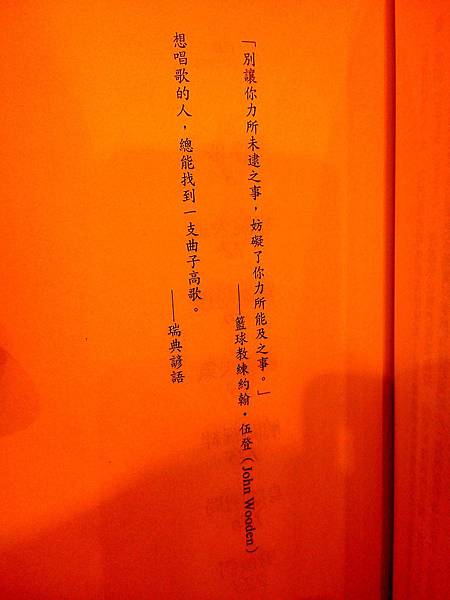 「別讓你力所未逮之事，妨礙了你力所能及之事。」
——籃球教練約翰・伍登（John Wooden）
想唱歌的人，總能找到一支曲子高歌。
——瑞典諺語